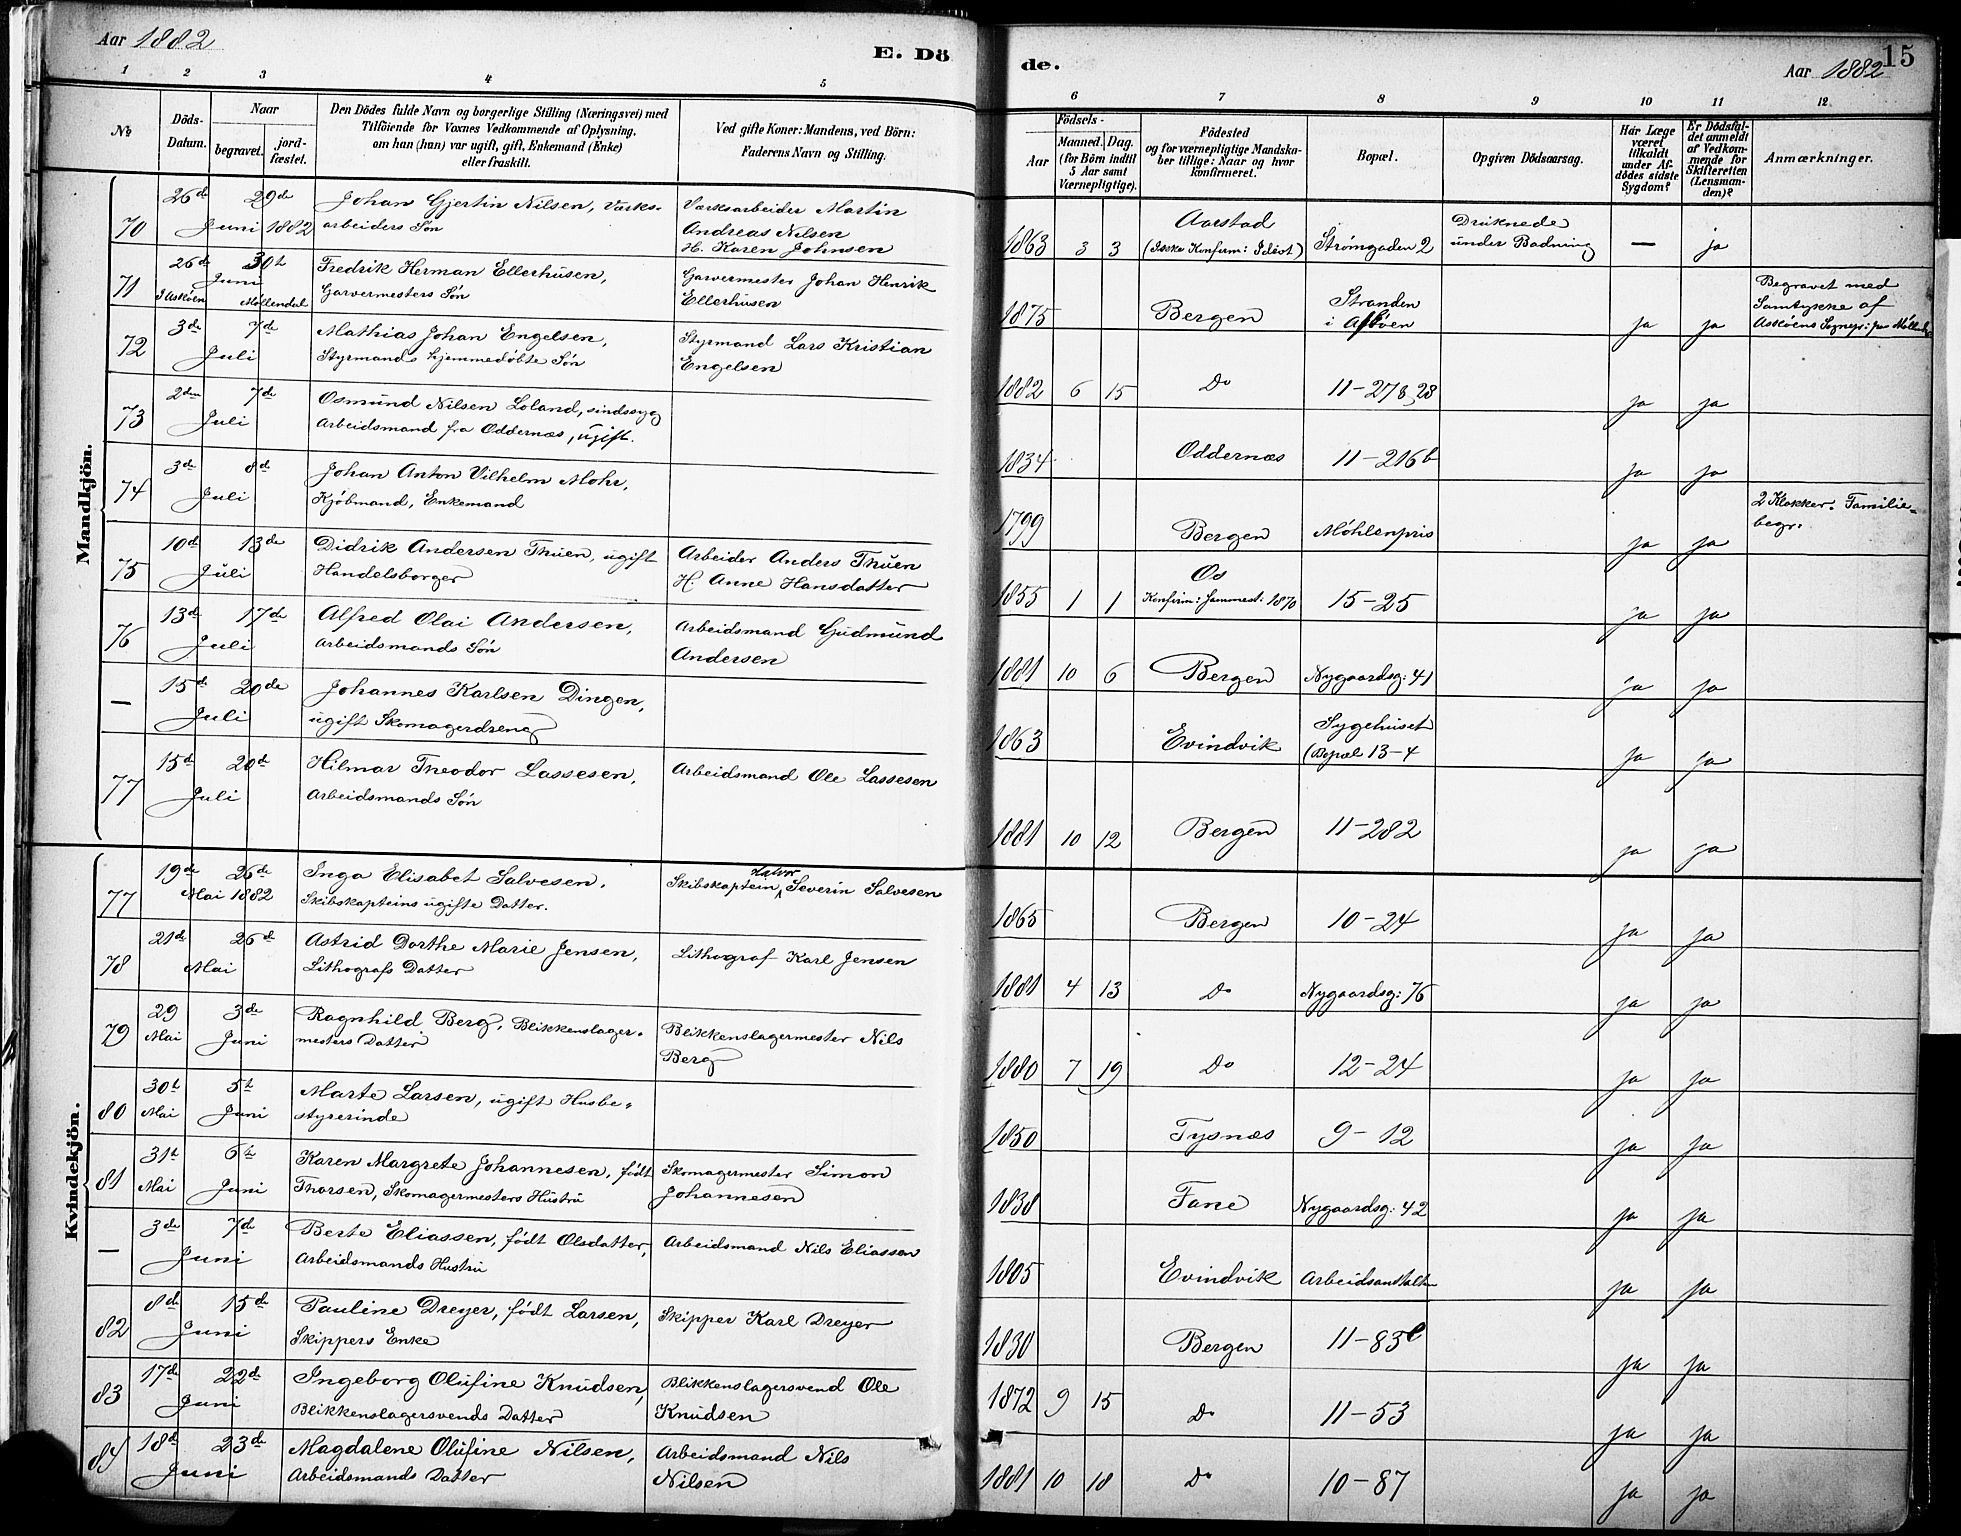 Aar 1882
E. Dö
de.
15
Aar 1882
1 2 3 4 5
6 7 8 9 10 11 12
№
Döds-
Datum.
Naar
begravet.
jord-
fæstet.
Den Dödes fulde Navn og borgerlige Stilling (Næringsvei) med
Tilföiende for Voxnes Vedkommende af Oplysning.
om han (hun) var ugift, gift, Enkemand (Enke)
eller fraskilt.
Ved gifte Koner: Mandens, ved Börn:
Faderens Navn og Stilling.
Födsels-
Aar
Maaned. Dag.
(for Börn indtil
5 Aar samt
Værnepligtige).
Födested
og for værnepligtige Mandska-
ber tillige: Naar og hvor
konfirmeret.
Bopæl.
Opgiven Dödsaarsag.
Har Læge
været
tilkaldt
under Af-
dödes sidste
Sygdom?
Er Dödsfal-
det anmeldt
af Vedkom-
mende for
Skifteretten
(Lensman-
den)?
Anmærkninger.
Mandkjön.
70 26de 29de Juni 1882
Johan Gjertin Nilsen, Værks-
arbeiders Søn
Værksarbeider Martin
Andreas Nilsen
H. Karen Johnsen
1863 3 3
Aarstad
(Ikke Konfirm: Idiot)
Strømgaden 2
Druknede
under Badning
— ja
71 26de 30t Juni
I Askøen Møllendal
Fredrik Herman Ellerhusen,
Garvermesters Søn
Garvermester Johan Henrik
Ellerhusen
1875 Bergen
Stranden
i Askøen
ja ja
Begravet med
Samtykke af
Askøens Sognepr: paa
72 3de 7de Juli
Mathias Johan Engelsen,
Styrmands hjemmedøbte Søn
Styrmand Lars Kristian
Engelsen
1882 6 15 Do 11-278,28 ja ja
73 2den 7de Juli
Osmund Nilsen Loland, sindssyg
Arbeidsmand fra Oddernæs, ugift.
1834 Oddernæs 11-216b ja ja
74 3de 8de Juli
Johan Anton Vilhelm Mohr,
Kjøbmand, Enkemand
1799 Bergen Møhlenpris ja ja
2 Klokker. Familie-
begr.
75 10de 13de Juli
Didrik Andersen Thuen, ugift
Handelsborger
Arbeider Anders Thuen
H. Anne Hansdatter
1855 1 1
Os
Konfirm: Sammest: 1870
15-25 ja ja
76 13de 17de Juli
Alfred Olai Andersen,
Arbeidsmands Søn
Arbeidsmand Gudmund
Andersen
1881 10 6 Bergen Nygaardsg: 41 ja ja
— 15de 20de Juli
Johannes Karlsen Dingen,
ugift Skomagerdreng
1863 Evindvik
Sygehuset
(Bopæl 13-4
ja ja
77 15de 20de Juli
Hilmar Theodor Lassesen,
Arbeidsmands Søn
Arbeidsmand Ole Lassesen
1881 10 12 Bergen 11-282 ja ja
Kvindekjön.
77 19de 26de Mai 1882
Inga Elisabet Salvesen,
Skibskapteins ugifte Datter.
Skibskaptein Severin Salvesen
1865 Bergen 10-24 ja ja
78 21de 26de Mai
Astrid Dorthe Marie Jensen,
Lithografs Datter
Lithograf Karl Jensen
1881 4 13 Do Nygaardsg: 76 ja ja
79 29 Mai 3de Juni
Ragnhild Berg, Blikkenslager-
mesters Datter
Blikkenslagermester Nils
Berg
1880 7 19 Do 12-24 ja ja
80 30t Mai 5t Juni
Marte Larsen, ugift Husbe-
styrerinde
1850 Tysnæs 9-12 ja ja
81 31t Mai 6t Juni
Karen Margrete Johannesen, født
Thorsen, Skomagermesters Hustru
Skomagermester Simon
Johannesen
1838 Fane Nygaardsg: 42 ja ja
— 3de 7de Juni
Berte Eliassen, født Olsdatter,
Arbeidsmands Hustru
Arbeidsmand Nils Eliassen
1805 Evindvik Arbeidsanstalten ja ja
82 8de 15de Juni
Pauline Dreyer, født Larsen,
Skippers Enke
Skipper Karl Dreyer
1830 Bergen 11-83c ja ja
83 17de 22de Juni
Ingeborg Olufine Knudsen,
Blikkenslagersvends Datter
Blikkenslagersvend Ole
Knudsen
1872 9 15 Do 11-53 ja ja
84 18de 23de Juni
Magdalene Olufine Nilsen,
Arbeidsmands Datter
Arbeidsmand Nils
Nilsen
1881 10 18 Do 10-87 ja ja